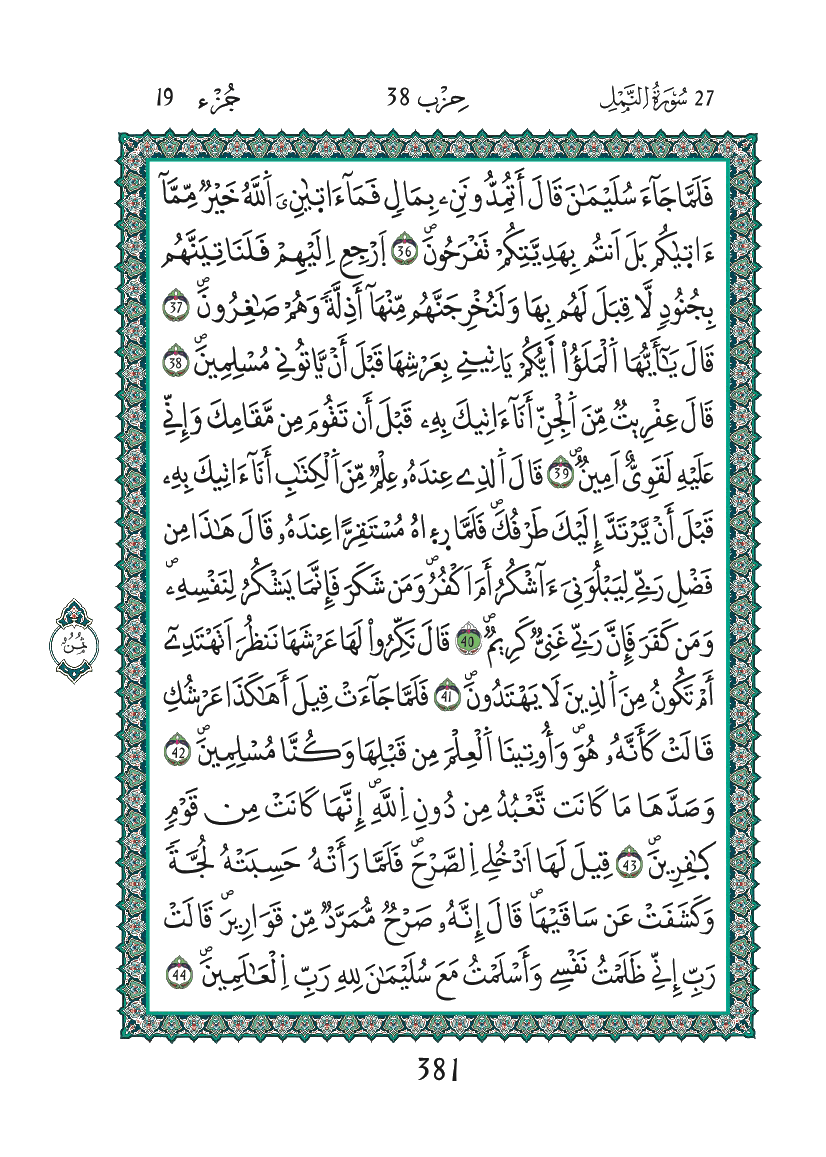 27 سُورَةُ النَّمْلِ حِزْب 38 جُزْء 19
فَلَمَّا جَآءَ سُلَيْمَٰنَ قَالَ أَتُمِدُّونَنِۦ بِمَالٖ فَمَآ ءَاتٜيٰنِۦَ اَ۬للَّهُ خَيْرٞ مِّمَّآ
ءَاتٜيٰكُم بَلَ اَنتُم بِهَدِيَّتِكُمْ تَفْرَحُونَۖ 36 اَ۪رْجِعِ اِلَيْهِمْ فَلَنَاتِيَنَّهُم
بِجُنُودٖ لَّا قِبَلَ لَهُم بِهَا وَلَنُخْرِجَنَّهُم مِّنْهَآ أَذِلَّةٗ وَهُمْ صَٰغِرُونَۖ 37
قَالَ يَٰٓأَيُّهَا اَ۬لْمَلَؤُاْ اَيُّكُمْ يَاتِينِے بِعَرْشِهَا قَبْلَ أَنْ يَّاتُونِے مُسْلِمِينَۖ 38
قَالَ عِفْرِيتٞ مِّنَ اَ۬لْجِنِّ أَنَآ ءَاتِيكَ بِهِۦ قَبْلَ أَن تَقُومَ مِن مَّقَامِكَ وَإِنِّے
عَلَيْهِ لَقَوِيٌّ اَمِينٞۖ 39 قَالَ اَ۬لذِے عِندَهُۥ عِلْمٞ مِّنَ اَ۬لْكِتَٰبِ أَنَآ ءَاتِيكَ بِهِۦ
قَبْلَ أَنْ يَّرْتَدَّ إِلَيْكَ طَرْفُكَۖ فَلَمَّا رٜء۪اهُ مُسْتَقِرّاً عِندَهُۥ قَالَ هَٰذَا مِن
فَضْلِ رَبِّے لِيَبْلُوَنِيَ ءَآشْكُرُ أَمَ اَكْفُرُۖ وَمَن شَكَرَ فَإِنَّمَا يَشْكُرُ لِنَفْسِهِۦۖ
وَمَن كَفَرَ فَإِنَّ رَبِّے غَنِيّٞ كَرِيمٞۖ 40 قَالَ نَكِّرُواْ لَهَا عَرْشَهَا نَنظُرَ اَتَهْتَدِےٓ
أَمْ تَكُونُ مِنَ اَ۬لذِينَ لَا يَهْتَدُونَۖ 41 فَلَمَّا جَآءَتْ قِيلَ أَهَٰكَذَا عَرْشُكِ
قَالَتْ كَأَنَّهُۥ هُوَۖ وَأُوتِينَا اَ۬لْعِلْمَ مِن قَبْلِهَا وَكُنَّا مُسْلِمِينَۖ 42
وَصَدَّهَا مَا كَانَت تَّعْبُدُ مِن دُونِ اِ۬للَّهِۖ إِنَّهَا كَانَتْ مِن قَوْمٖ
كٰٜفِرِينَۖ 43 قِيلَ لَهَا اَ۟دْخُلِے اِ۬لصَّرْحَۖ فَلَمَّا رَأَتْهُ حَسِبَتْهُ لُجَّةٗ
وَكَشَفَتْ عَن سَاقَيْهَاۖ قَالَ إِنَّهُۥ صَرْحٞ مُّمَرَّدٞ مِّن قَوَارِيرَۖ قَالَتْ
رَبِّ إِنِّے ظَلَمْتُ نَفْسِے وَأَسْلَمْتُ مَعَ سُلَيْمَٰنَ لِلهِ رَبِّ اِ۬لْعَٰلَمِينَۖ 44
ثُمُن
381